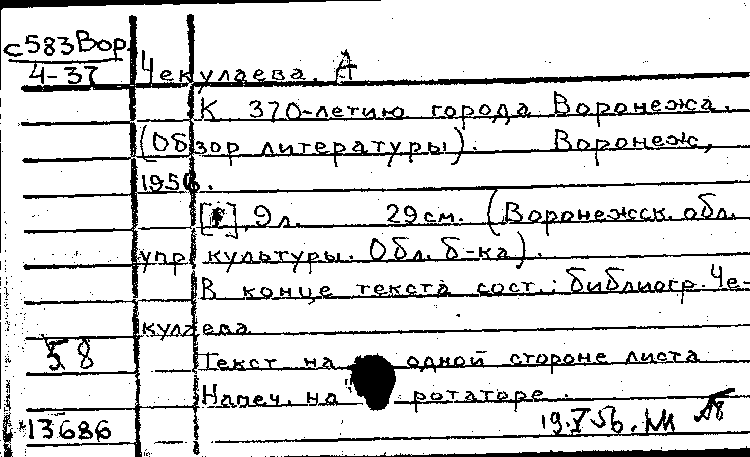 с583Вор.
4-37
Чекулаева. А
К 370-летию города Воронежа.
(Обзор литературы). Воронеж,
1956.
[ ], 9 л. 29 см. (Воронежск. обл.
упр. культуры. Обл. б-ка).
В конце текста сост.: библиогр. Че-
кулаева
58
Текст на одной стороне листа
Напеч. на ротаторе.
13686
19.V 56.